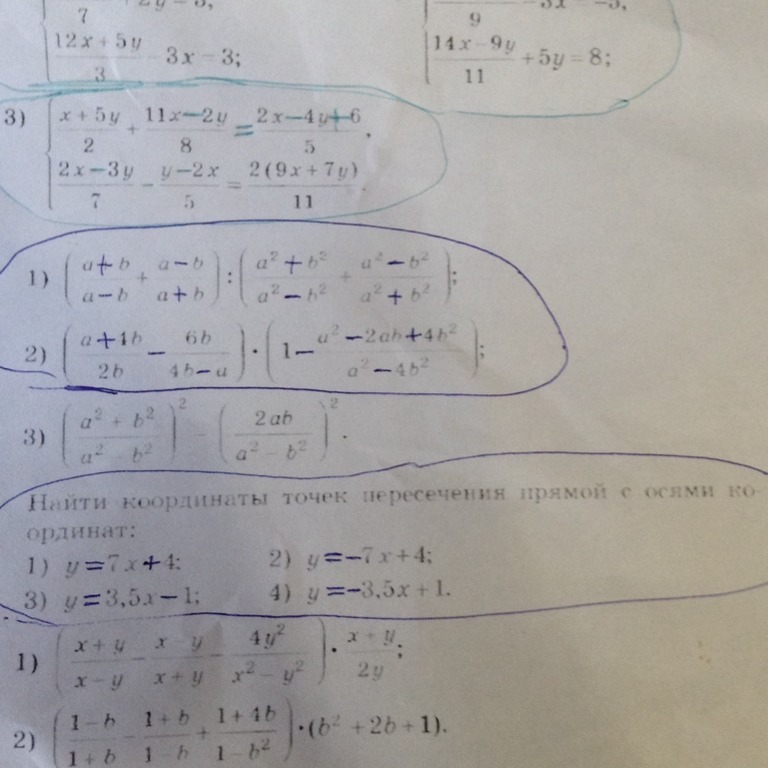 12x + 5y / 3 - 3x = 3;
14x - 9y / 11 + 5y = 8;
3) { x + 5y / 2 + 11x - 2y / 8 = 2x - 4y + 6 / 5,
2x - 3y / 7 - y - 2x / 5 = 2(9x + 7y) / 11.
1) (a + b / a - b + a - b / a + b) : (a² + b² / a² - b² + a² - b² / a² + b²);
2) (a + 4b / 2b - 6b / 4b - a) · (1 - a² - 2ab + 4b² / a² - 4b²);
3) (a² + b² / a² - b²)² - (2ab / a² - b²)².
Найти координаты точек пересечения прямой с осями ко-
ординат:
1) y = 7x + 4; 2) y = -7x + 4;
3) y = 3,5x - 1; 4) y = -3,5x + 1.
1) (x + y / x - y - x - y / x + y - 4y² / x² - y²) · x + y / 2y;
2) (1 - b / 1 + b - 1 + b / 1 - b + 1 + 4b / 1 - b²) · (b² + 2b + 1).